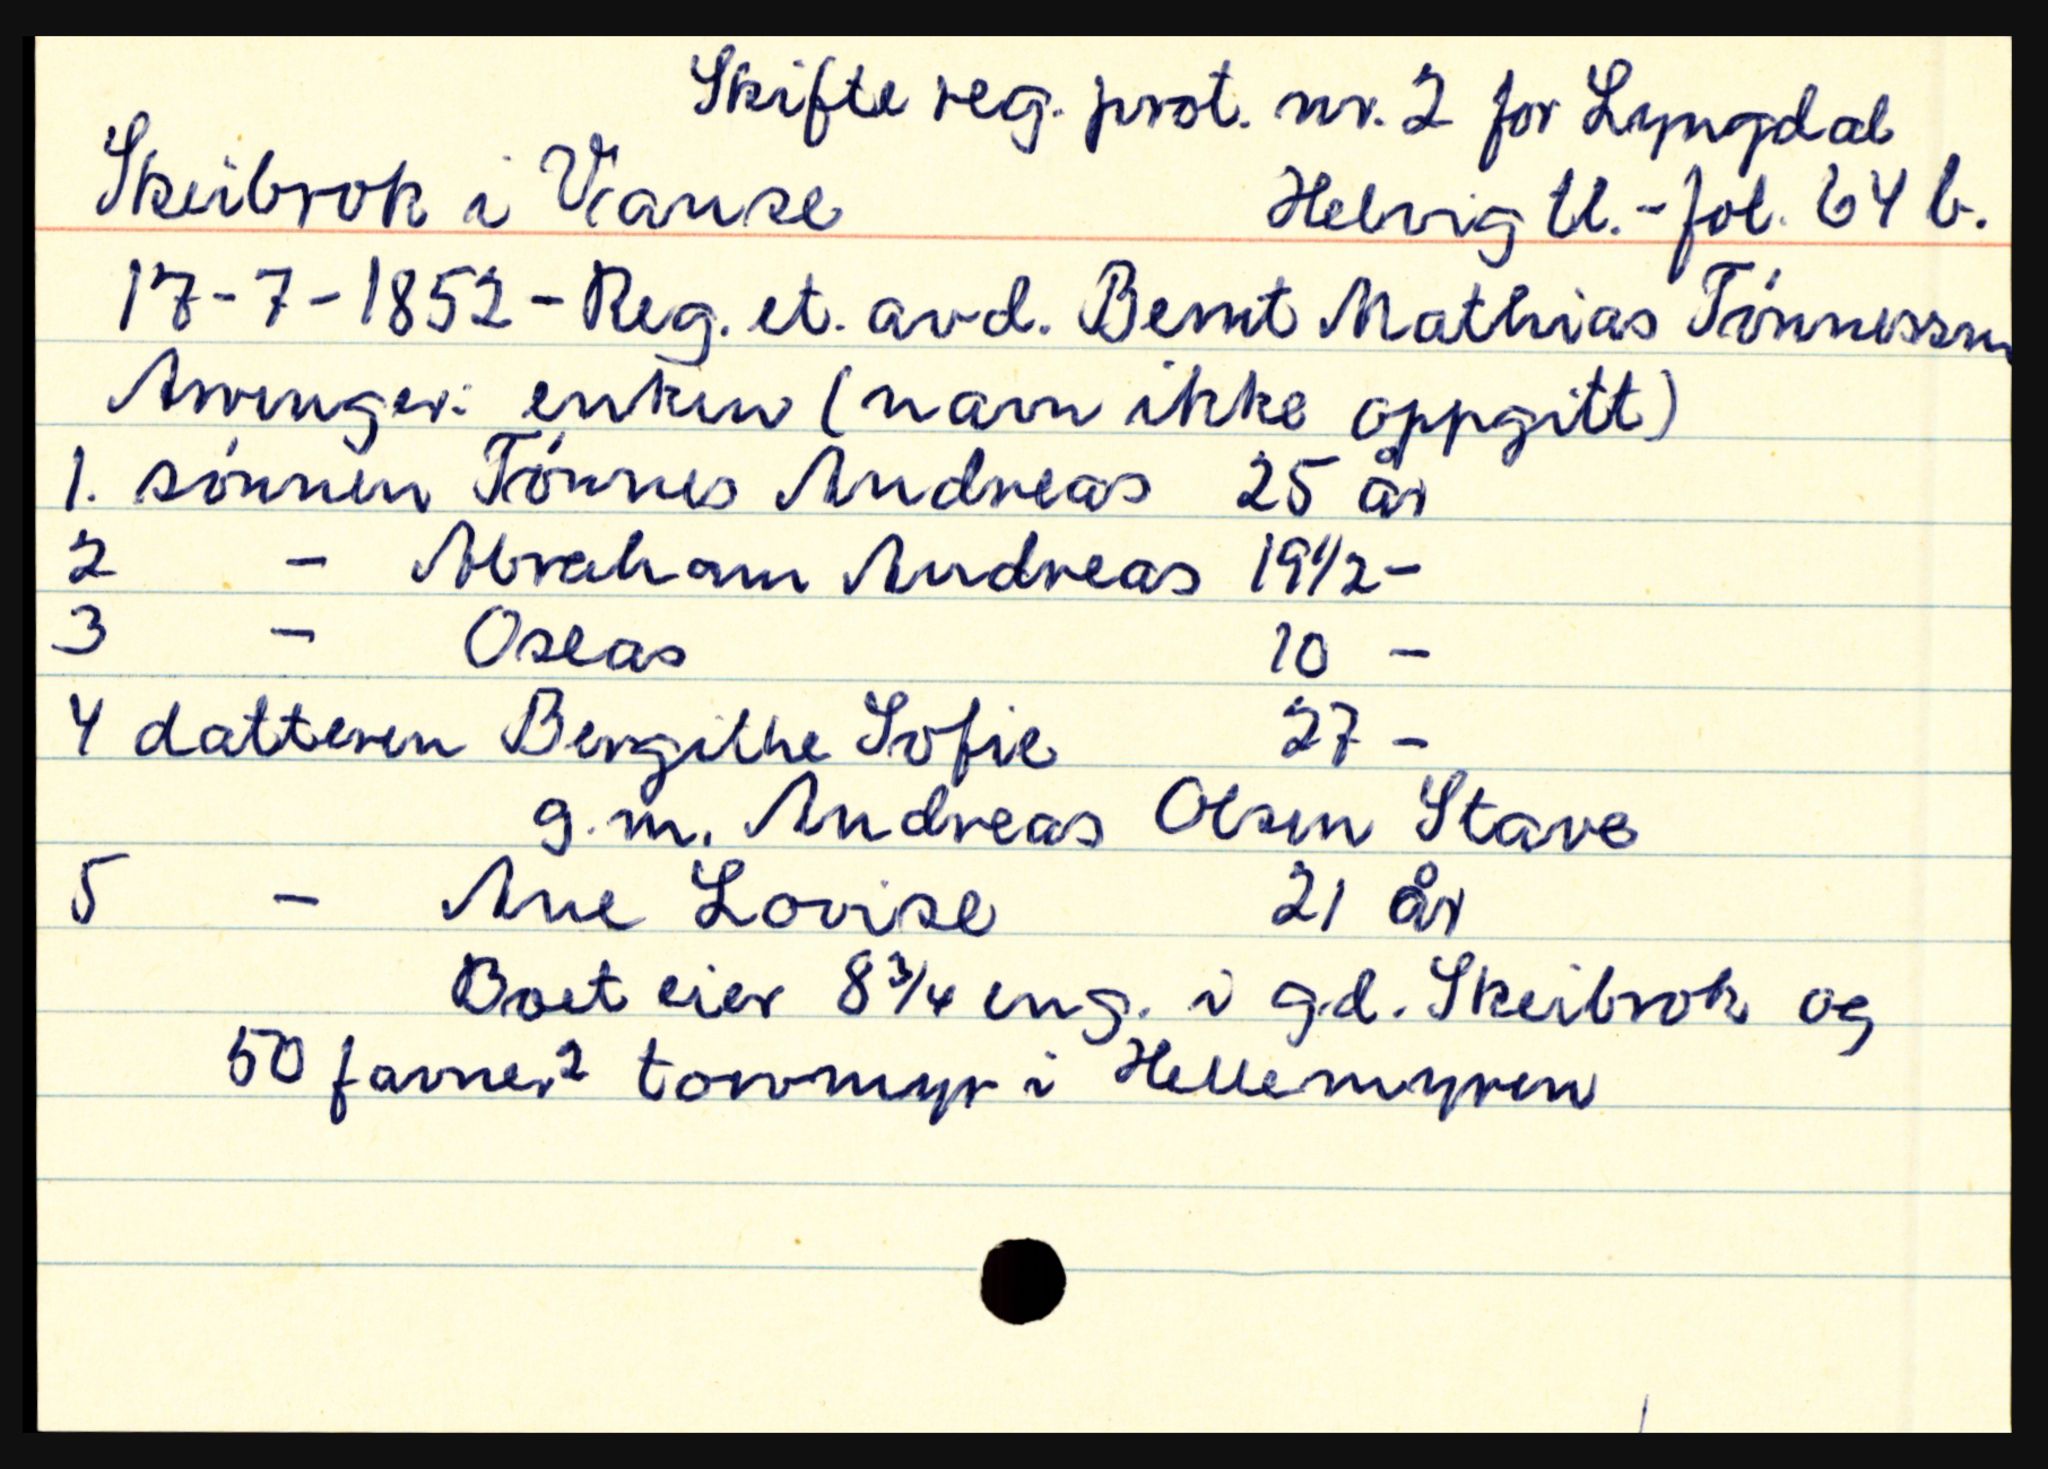 Skifte reg. prot. nr. 2 for Lyngdal
Skeibrok i Vanse Helvig U. - fol. 64 b.
17-7-1852 - Reg. et. avd. Bernt Mathias Tónnessen
Arvinger: enken (navn ikke oppgitt)
1. sónnen Tónnes Andreas 25 år
2 - Abraham Andreas 19 1/2 -
3 - Oseas 10 -
4 datteren Bergithe Sofie 27 -
g.m. Andreas Olsen Stave
5 - Ane Lovise 21 år
Boet eier 8 3/4 eng. i gd. Skeibrok og
50 favner² torvmyr i Hellemyren